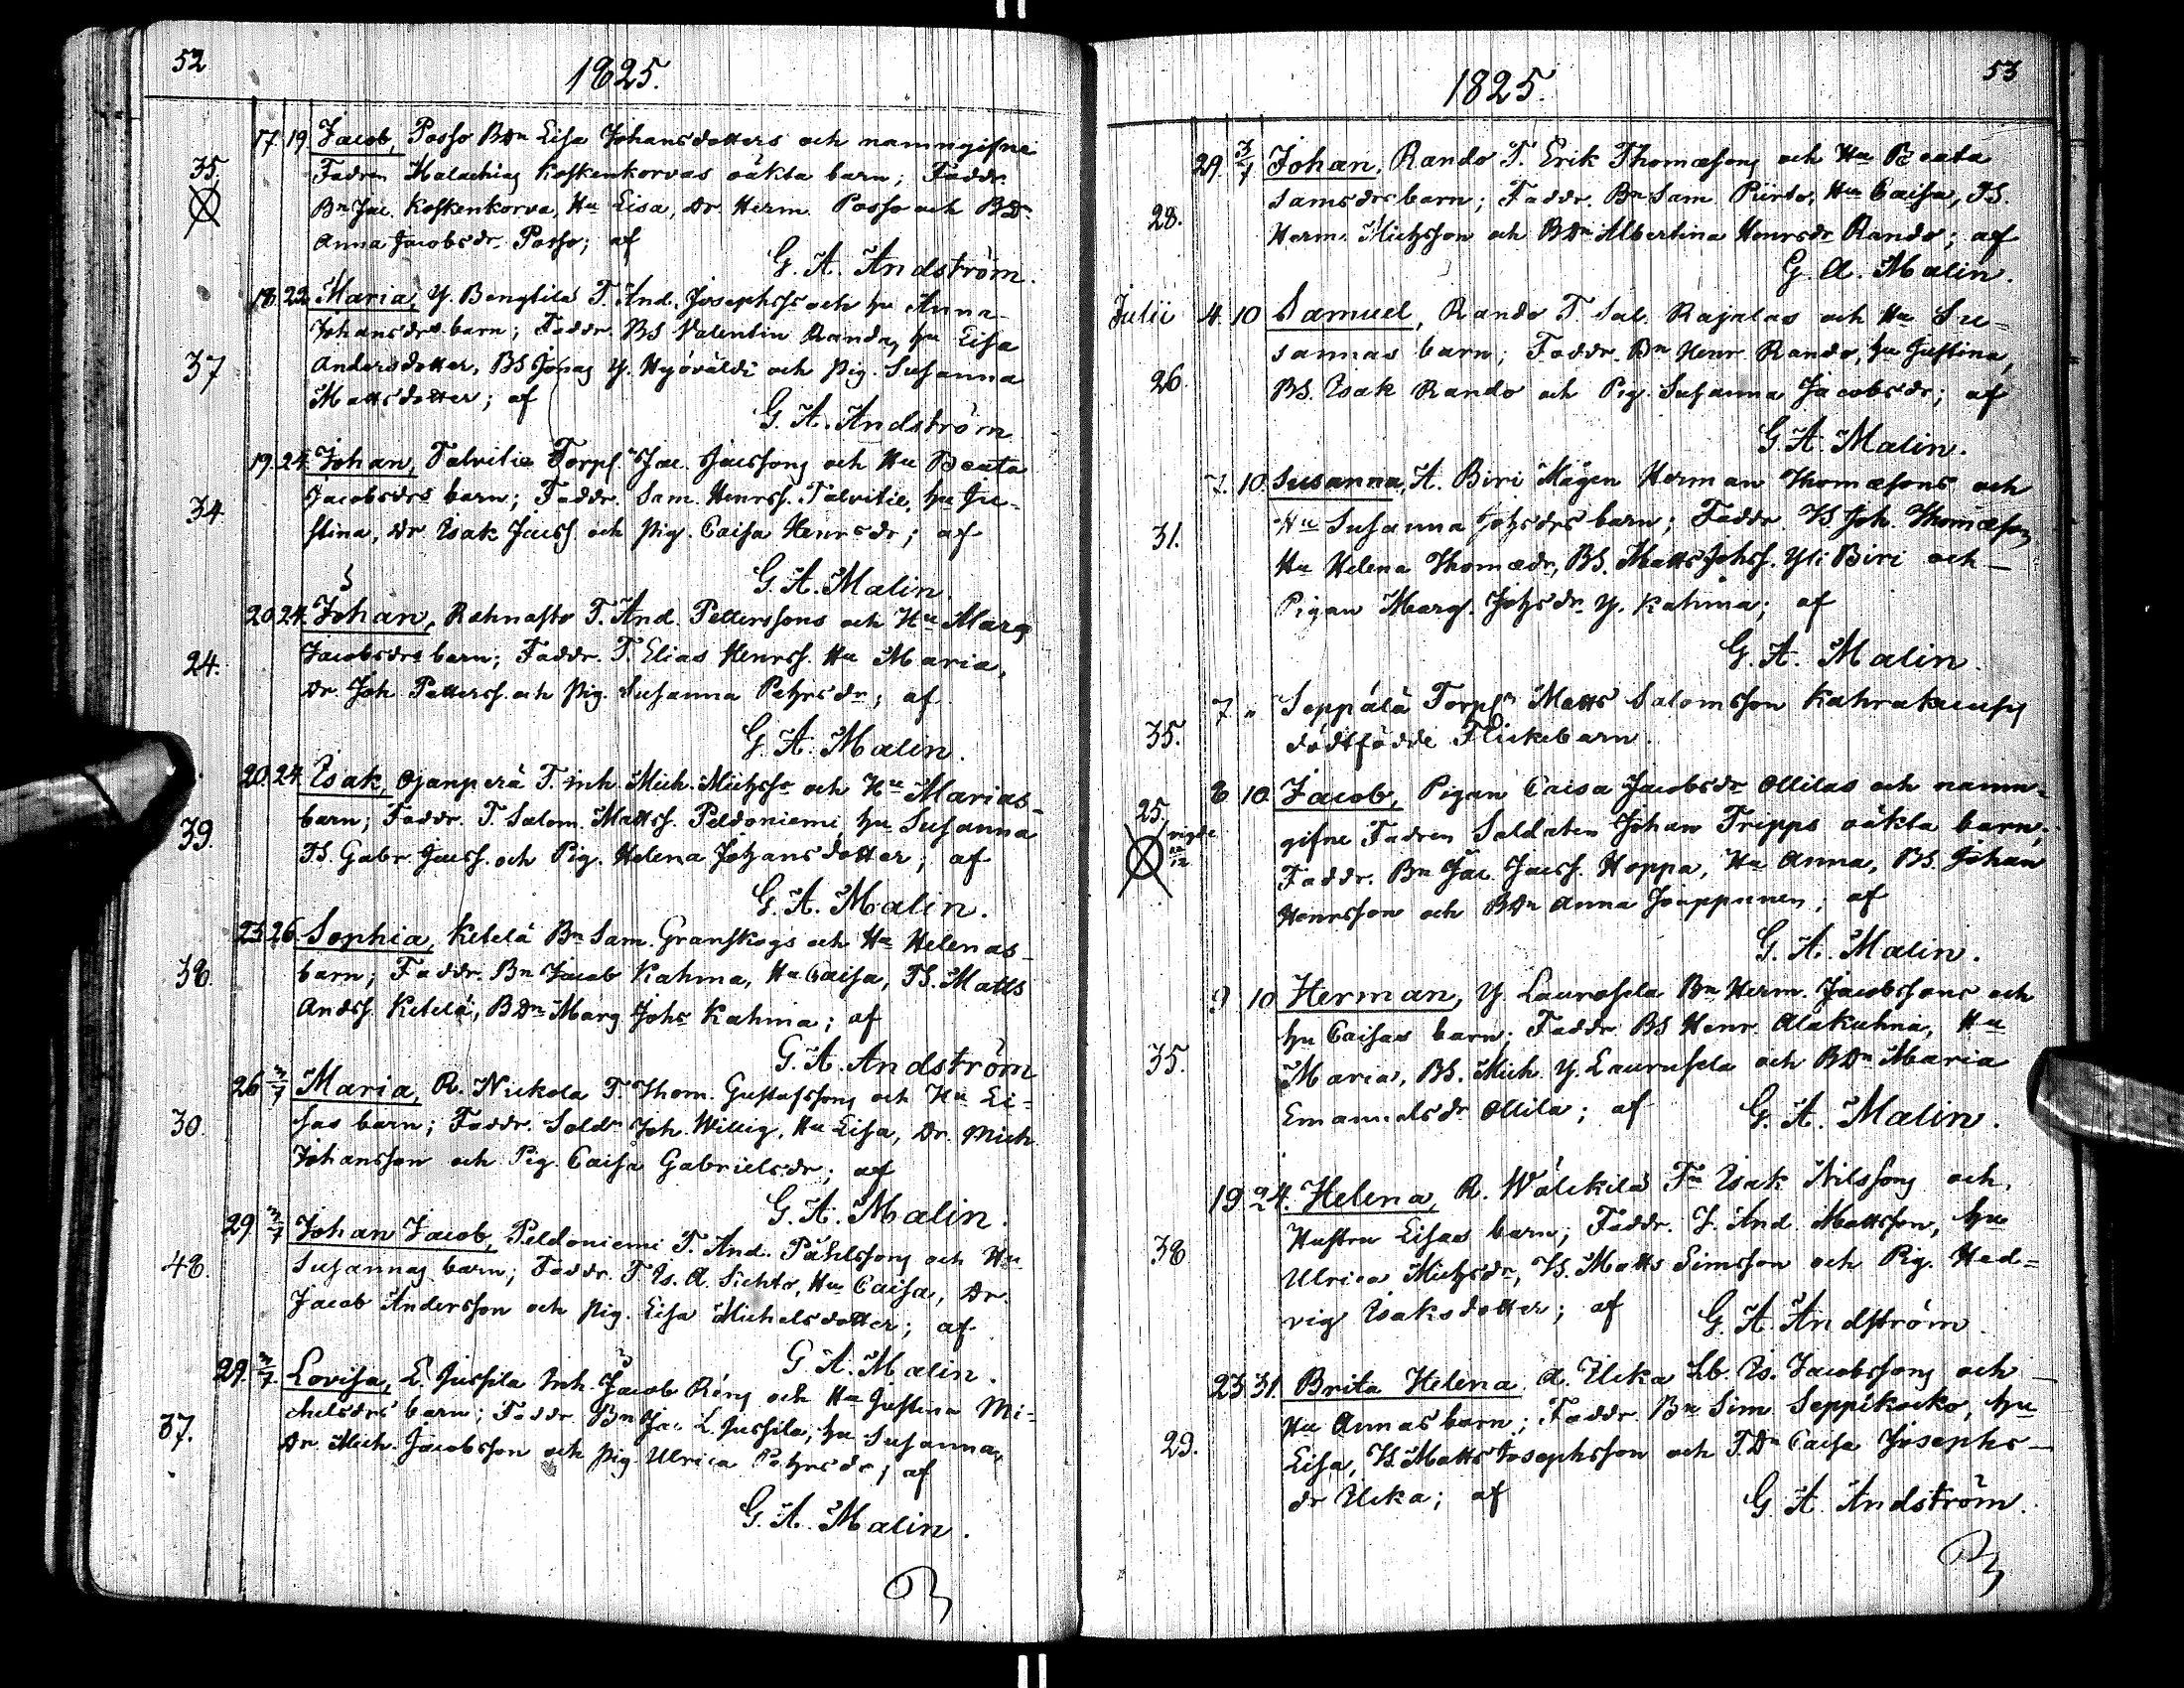 52
1825.
17. 19. Jacob, Passo BDr Lisa Johansdotters och namngifne
35. Fadren Malachias Koskenkorvas oäkta barn; Faddr.
Bn Jac. Koskenkorva, Hu Lisa, Dr. Herm. Passo och BDr.
Anna Jacobsdr. Passo; af
G. A. Andström.
18. 22. Maria, Y. Bengtilä T. And. Josephss. och hu Anna
Johansdrs barn; Faddr. BS Valentin Randa, hu Lisa
37 Andersdotter, BS Jonas Y. Hyöväldi och Pig. Susanna
Mattsdotter; af
G. A. Andström
19. 24. Johan, Talvitie Torps. Jac. Jacssons och Hu Beata
Jacobsdrs barn; Faddr. Sam. Henrss. Talvitie, hu Ju-
34 stina, Dr Isak Jacss. och Pig. Caisa Henrsdr; af
G. A. Malin.
20. 24. Johan, Rahnasto T. And. Petterssons och Hu Marg
Jacobsdrs barn; Faddr. T. Elias Henrss. Hu Maria,
24. Dr. Joh Petterss. och Pig. Susanna Petzrsdr; af
G. A. Malin.
20. 24. Isak, Ojanperä T. Inh. Mich. Michss och Hu Marias
barn; Faddr. T. Salom. Mattss. Peldoniemi, hu Susanna
39. TS. Gabr. Jacss. och Pig. Helena Johansdotter; af
G. A. Malin.
23. 26. Sophia, Ketelä Bn Sam. Granskogs och Hu Helenas
38. barn; Faddr. Bn Jacob Kahma, Hu Caisa, TS. Matts
Andss. Ketelä, BDr Marg Johs Kahma; af
G. A. Andström
26 3/7 Maria, R. Nickola T. Thom. Gustafssons och Hu Li-
30. sas barn; Faddr. Sold. Joh. Willig, Hu Lisa, Dr. Mich
Johansson och Pig. Caisa Gabrielsdr; af
G. A. Malin.
29 3/7 Johan Jacob, Peldoniemi T. And. Påhlssons och Hu
48. Susannas barn; Faddr. T. Is. A. Sichto, Hu Caisa, Dr.
Jacob Andersson och Pig. Lisa Michelsdotter; af
G A. Malin.
29. 3/7. Lovisa, L. Jussila Inh. Jacob Röng och Hu Justina Mi-
chelsdrs barn; Faddr. Bn Jac L. Jussila, hu Susanna,
37. Dr. Mich. Jacobsson och Pig. Ulrica Petzrsdr; af
G. A. Malin.

53
1825.
29. 3/7 Johan, Rando T. Erik Thomæsons och Hu Beata
Samsdrs barn; Faddr. Bn Sam Piirto, Hu Caisa, TS.
28. Herm. Michsson och BDr Albertina Henrsdr Rando; af
G. A. Malin.
Julii 4. 10 Samuel, Rando T. Sal. Rajalas och Hu Su-
sannas barn; Faddr. Bn Henr Rando, hu Justina,
26. BS. Isak Rando och Pig. Susanna Jacobsdr; af
G. A. Malin.
7. 10. Susanna, A. Biri Mågen Herman Thomæsons och
31. Hu Susanna Johsdrs barn; Faddr. TS Joh. Thomæson
Hu Helena Thomædr, BS. Matts Johss. Yli Biri och
Pigan Marg. Johsdr Y. Kahma; af
G. A. Malin.
7 " Seppälä Torps. Matts Salomsson
35. dödfödde Flickebarn.
8 10. Jacob, Pigan Caisa Jacobsdr Ollilas och namn-
25. gifne Fadren Soldaten Johan Trepps oäkta barn;
Faddr. Bn Jac Jacss. Hoppa, Hu Anna, BS. Johan
Henrsson och BDr Anna Jouppinen; af
G. A. Malin.
9 10 Herman, Y Laurosela Bn Herm. Jacobssons och
hu Caisas barn; Faddr. BS Henr. Alakuhna, Hu
35. Maria, BS. Mich Y. Laurusela och BDr Maria
Emanuelsdr Ollila; af G. A. Malin.
19 24. Helena, R. Wälckilä Tn Isak Nilssons och
Hustru Lisas barn; Faddr. J. And. Mattsson, hu
38 Ulrica Michsdr, TS. Matts Simsson och Pig. Hed-
vig Isaksdotter; af G. A. Andström
23. 31. Brita Helena A. Ilcka Lb. Is. Jacobssons och
Hu Annas barn; Faddr. Bn Sim Seppikocko, hu
29. Lisa, TS. Matts Josephsson och T.Dr Caisa Josephs-
dr Ilcka; af G. A. Andström.